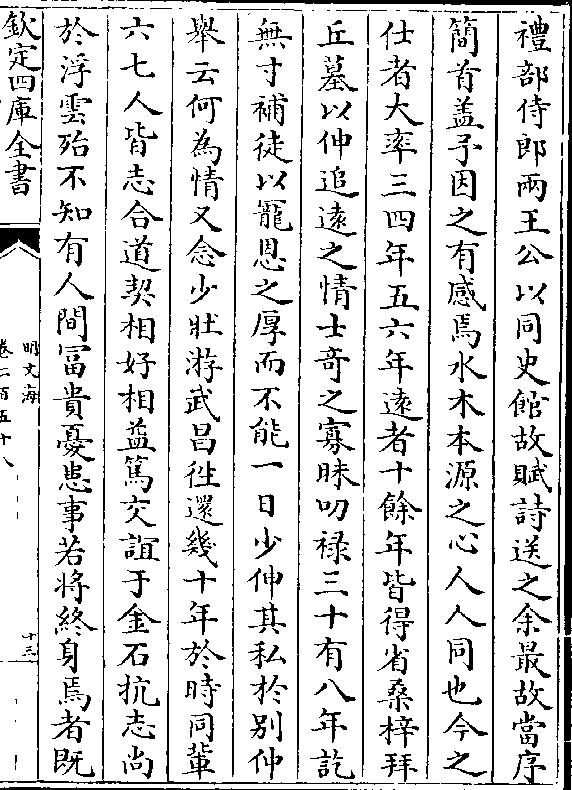 禮部侍郎兩王公以同史館故賦詩送之余最故當序
簡首盖予因之有感焉水木本源之心人人同也今之
仕者大率三四年五六年逺者十餘年皆得省桑梓拜
丘墓以伸追逺之情士竒之寡昧叨禄三十有八年訖
無寸補徒以寵恩之厚而不能一日少伸其私於别仲
舉云何為情又念少壯游武昌徃還幾十年於時同輩
六七人皆志合道契相好相益篤交誼于金石抗志尚
於浮雲殆不知有人間富貴憂患事若将終身焉者既
欽定四庫全書
明文海
卷二百五十八
十三